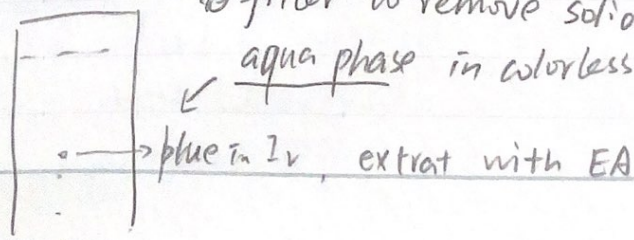 filter to remove solid
aqua phase in colorless
blue in Iv, extrat with EA